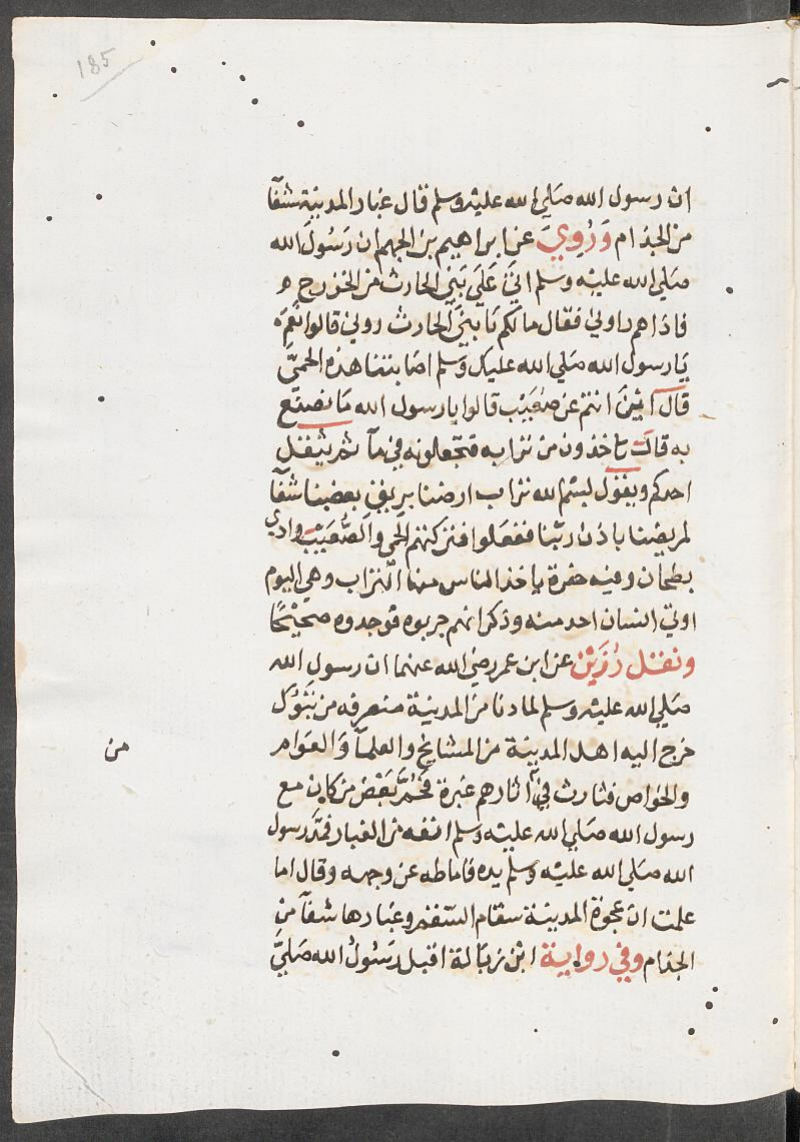 185
ان رسول الله صَلي الله عليه وسلم قال غبار المدينة شفآ
من الجذام وَرُويَ عن ابراهيم بن الجهم ان رَسُولَ الله
صَلي الله عليه وسلم اتيَ عَلَي بَنِي الحارث من الخزرج
فاذا هم روبي فقال مالكم يَا بَنِي الحارث روبي قالوا نعَم
يَا رسول الله صَلي الله عليك وسلم اصَابتنا هذه الحميَّ
قال اَيْنَ انتم عن صُعَيْب قالوا يا رسول الله مَا نصنع
به قالَ تاخذون من ترابه فتجعلونه في مآ ثم يتفل
احدكم ويقول لبسم الله تراب ارضنا بريق بعضنا شفآ
لمريضنا باذن ربنا ففعَلوا فتركتهم الحمي والصُّعَيْب وادي
بطحان وفيه حفرة ياخذ الناس منها التراب وهي اليوم
اذا انسان اخذ منه وذكر انهم جربوه فوجدوه صحيْحًا
ونقل رُزَيْن عن ابن عمر رضي الله عنهما ان رسول الله
صَلي الله عليه وسلم لما دنا من المدينة منصرفه من تبُوك
خرج اليه اهل المدينة من المشايخ والعلمآ وَالعوام
والخواص فثارت في اثارهم غبرة فخمَّر بَعْض من كان مع
رسول الله صَلي الله عليه وسلم انفه من الغبار فمَّد رسول
الله صَلي الله عليه وسلم يده فاماطه عن وجهه وقال اما
علمت ان عجوة المدينة سقام السقم وغبارها شفآ من
الجذام وفي رواية ابن زبَالة اقبل رسُولُ الله صَليَّ
من